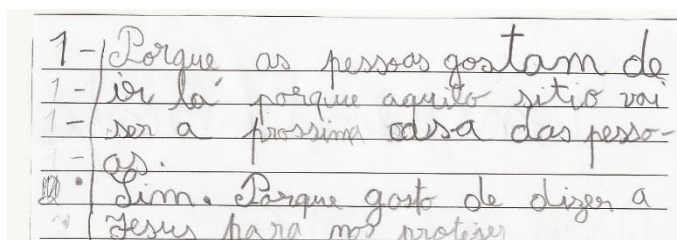 1- Porque as pessoas gostam de
1- ir lá porque aquilo sitio vai
1- ser a prossima casa das pesso-
1- as.
• Sim. Porque gosto de dizer a
Jesus para nos proteger